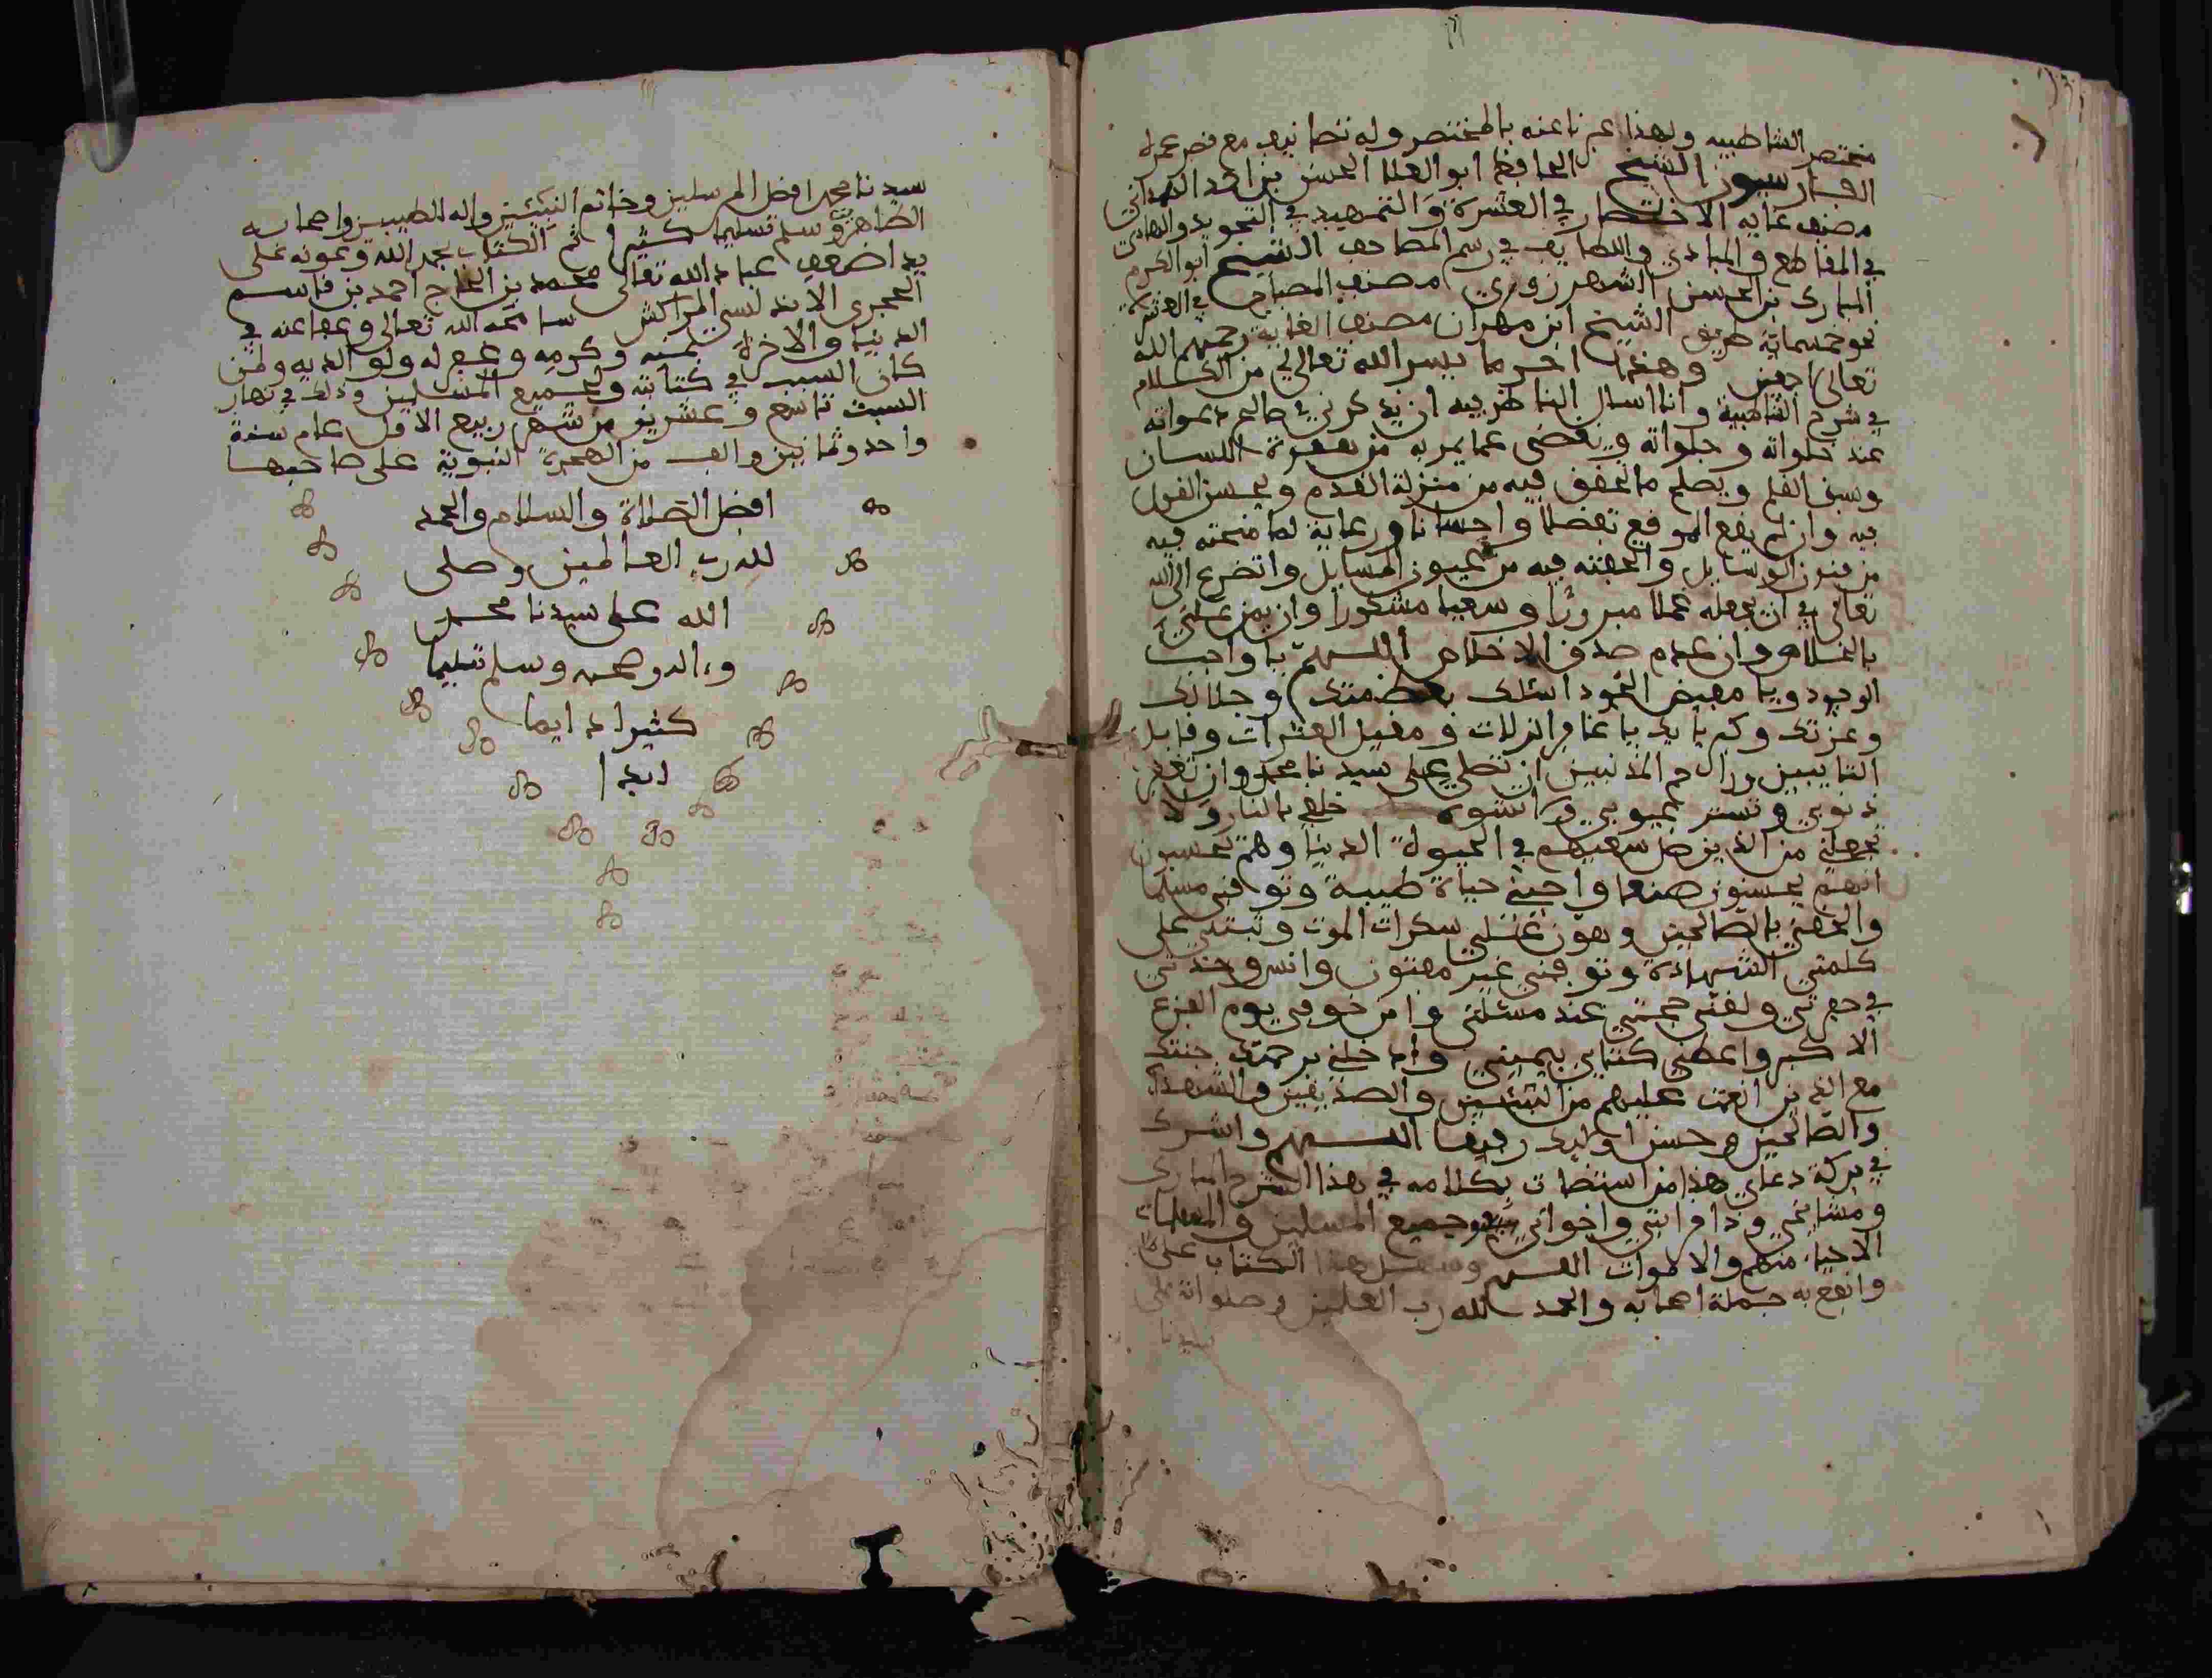 مختصر الشاطبيه ولهذا عبرنا عنه بالمختصر وله تصانيف مع قصر عمره
الفارسيون الشيخ الحافظ ابو العلا الحسن بن احمد الهمداني
مصنف غايه الاختصار في العشرة والتمهيد في التجويد والهادي
في المقاطع والمبادي واللطايف في رسم المصاحف الشيخ ابو الكرم
المبارك بن الحسن الشهرزوري مصنف المصباح في العشرة
نحو خمسماية طريق الشيخ ابن مهران مصنف الغاية رحمهم الله
تعالى اجمعين وهذا اخر ما يسر الله تعالى لي من الكلام
في شرح الشاطبية وانا اسال الناظر فيه ان يذكرني في صالح دعواته
عند خلواته وجلواته ويغضي عما يمر به من هفوة اللسان
وسبق القلم ويصلح ما تحقق فيه من منزلة القدم ويحسن القول
فيه وان لم يقع الموقع تفضلا واحسانا ورعاية لما منحته فيه
من فنون الوسايل واتحفته فيه من عيون المسايل واتضرع الى الله
تعالى في ان يجعله عملا مبرورا وسعيا مشكورا وان يمن علي
بالخلاص وان عدم صدق الاخلاص اللهم يا واجب
الوجود ويا مفيض الجود اسئلك بعظمتك وجلالك
وعزتك وكبريايك يا غافر الزلات ومقيل العثرات وقابل
التايبين وراحم المذنبين ان تصلي على سيدنا محمد وان تغفر
ذنوبي وتستر عيوبي ولا تشوه خلقي بالنار ولا
تجعلني من الذين ضل سعيهم في الحيوة الدنيا وهم يحسبون
انهم يحسنون صنعا واحيني حياة طيبة وتوفني مسلما
والحقني بالصالحين وهون علي سكرات الموت وثبتني على
كلمتي الشهادة وتوفني غير مفتون وانس وحدتي
في حفرتي ولقني حجتي عند مسئلتي وامن خوفي يوم الفزع
الاكبر واعطني كتابي بيميني وادخلني برحمتك جنتك
مع الذين انعمت عليهم من النبيين والصديقين والشهداء
والصالحين وحسن اوليك رفيقا اللهم واشرك
في بركة دعاي هذا من استضات بكلامه في هذا الشرح المبارك
ومشايخي وذا قرابتي واخواني وجميع المسلمين والمسلمات
الاحياء منهم والاموات اللهم وسهل هذا الكتاب على
وانفع به جملة اصحابه والحمد لله رب العلمين وصلواته على
سيدنا
سيدنا محمد افضل المرسلين وخاتم النبيئين واله الطيبين واصحابه
الطاهرين وسلم تسليما كثيرا تم الكتاب بحمد الله وعونه على
يد اضعف عباد الله تعالى محمد بن الحاج احمد بن قاسم
الحجري الاندلسي المراكشي سامحه الله تعالى وعفا عنه في
الدنيا والاخرة بمنه وكرمه وغفر له ولوالديه ولمن
كان السبب في كتابته ولجميع المسلمين وذلك في نهار
السبت تاسع وعشرين من شهر ربيع الاول عام سنة
واحد وثمانين والف من الهجرة النبوية على صاحبها
افضل الصلاة والسلام والحمد
لله رب العالمين وصلى
الله على سيدنا محمد
وءاله وصحبه وسلم تسليما
كثيرا دايما
ابدا